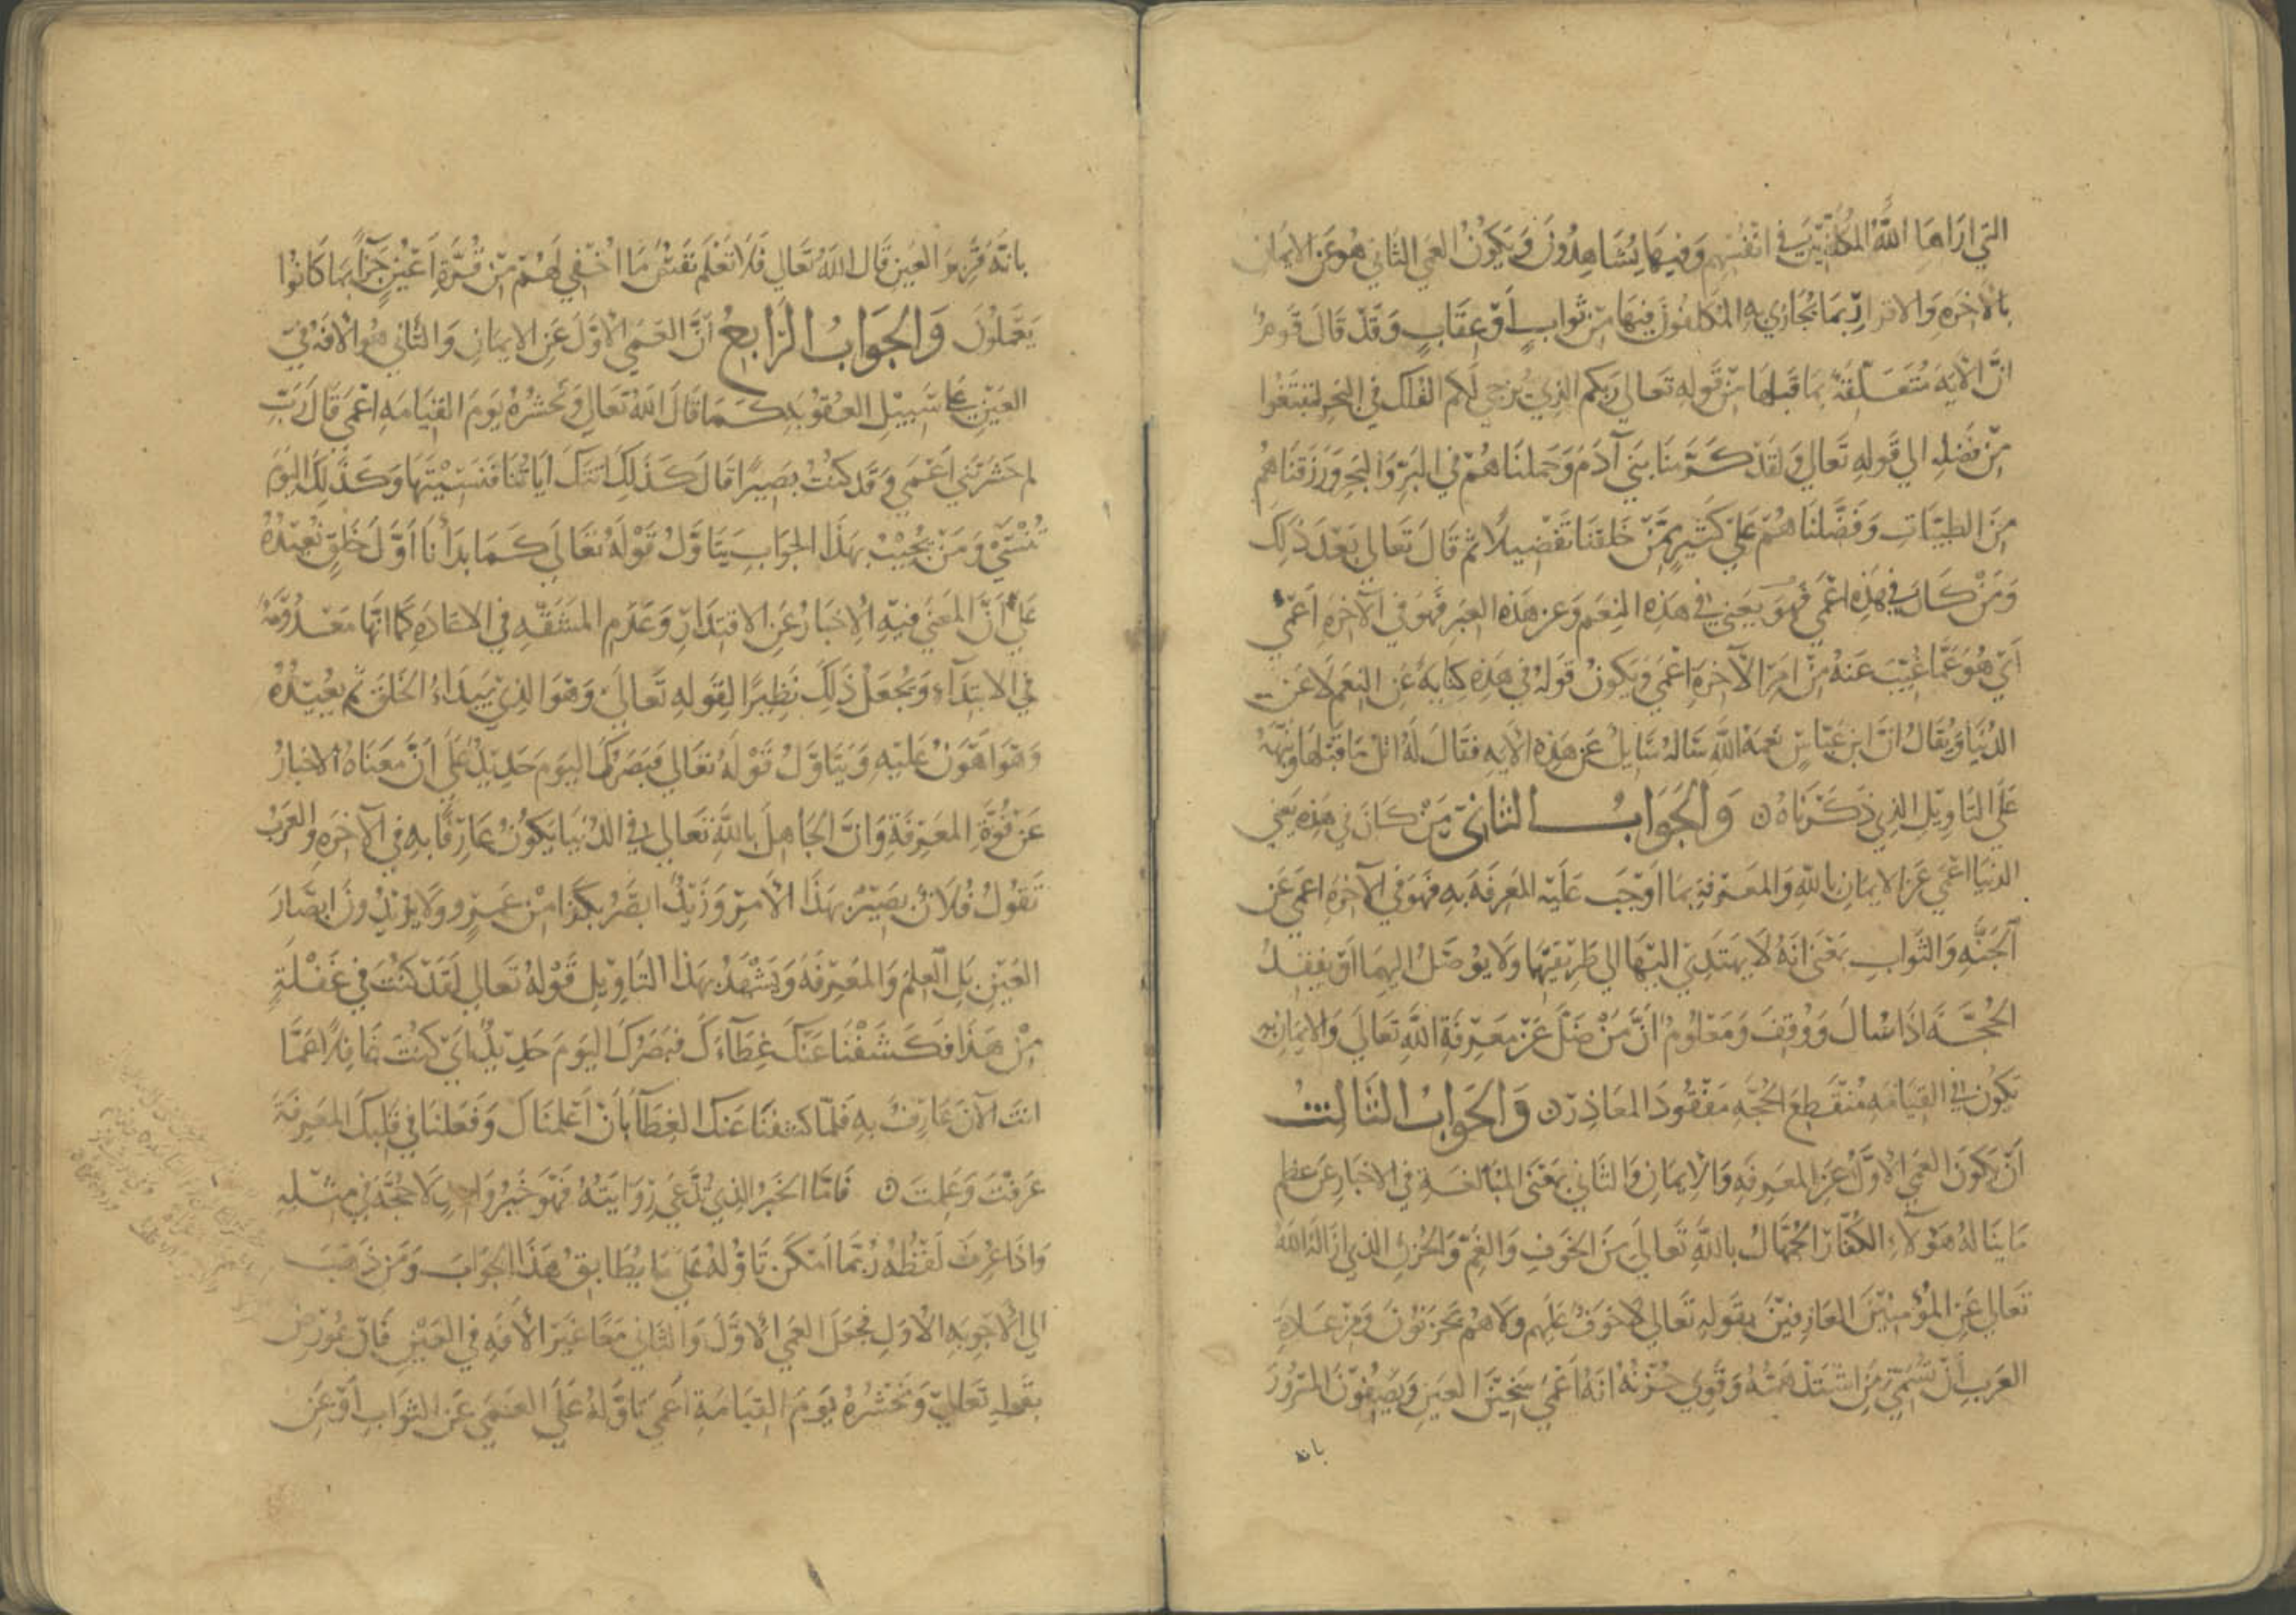 التي اراها الله المكلفين في انفسهم وفيما يشاهدون ويكون العمي الثاني هو عن الايمان
بالاخرة والاقرار بما يجازي به المكلفون فيها من ثواب او عقاب وقد قال قوم
ان الاية متعلقة بما قبلها من قوله تعالي ربكم الذي يزجي لكم الفلك في البحر لتبتغوا
من فضله الي قوله تعالي ولقد كرمنا بني آدم وحملناهم في البر والبحر ورزقناهم
من الطيبات وفضلناهم علي كثير ممن خلقنا تفضيلا ثم قال تعالي بعد ذلك
ومن كان في هذه اعمي فهو يعني في هذه النعم وعن هذه العبر فهو في الآخرة اعمي
اي هو عما غيب عنه من امر الآخرة اعمي ويكون قوله في هذه كناية عن النعم لا عن
الدنيا ويقال ان ابن عباس رحمه الله ساله سايل عن هذه الاية فقال له اتل ما قبلها ونبهه
علي التاويل الذي ذكرناه ن والجواب الثاني من كان في هذه يعني
الدنيا اعمي عن الايمان بالله والمعرفة بما اوجب عليه المعرفة به فهو في الآخرة اعمي عن
الجنه والثواب بمعني انه لا يهتدي اليها الي طريقها ولا يوصل اليهما او يفقد
الحجة اذا سال ووقف ومعلوم ان من ضل عن معرفة الله تعالي والايمان به
يكون في القيامه منقطع الحجه مفقود المعاذر ن والجواب الثالث
ان يكون العمي الاول عن المعرفه والايمان والثاني بمعني المبالغة في الاخبار عن عظم
ما يناله هولاء الكفار الجهال بالله تعالي من الخوف والغم والحزن الذي ازاله الله
تعالي عن المؤمنين العارفين بقوله تعالي لا خوف عليهم ولا هم يحزنون ومن عادة
العرب ان تسمي من اشتد همه وقوي حزنه انه اعمي سخين العين ويصفون المسرور
بانه
بانه قرير العين قال الله تعالي فلا تعلم نفس ما اخفي لهم من قرة اعين جزاء بما كانوا
يعملون والجواب الرابع ان العمي الاول عن الايمان والثاني هو الافه في
العين علي سبيل العقوبه كما قال الله تعالي ونحشره يوم القيامه اعمي قال رب
لم حشرتني اعمي وقد كنت بصيرا قال كذلك اتتك اياتنا فنسيتها وكذلك اليوم
تنسي ومن يجيب بهذا الجواب يتاول قوله تعالي كما بدأنا اول خلق نعيده
علي ان المعني فيه الاخبار عن الاقتدار وعدم المشقه في الاعاده كما انها معدومة
في الابتداء ويجعل ذلك نظيرا لقوله تعالي وهو الذي يبداء الخلق ثم يعيده
وهو اهون عليه ويتاول قوله تعالي فبصرك اليوم حديد علي ان معناه الاخبار
عن قوة المعرفة وان الجاهل بالله تعالي في الدنيا يكون عارفا به في الآخره والعرب
تقول فلان بصير بهذا الامر وزيد ابصر بكذا من عمرو ولا يريدون ابصار
العين بل العلم والمعرفه ويشهد بهذا التاويل قوله تعالي لقد كنت في غفلة
من هذا فكشفنا عنك غطاءك فبصرك اليوم حديد اي كنت غافلا عما
انت الآن عارف به فلما كشفنا عنك الغطآء بان اعلمناك وفعلنا في قلبك المعرفة
عرفت وعلمت ن فاما الخبر الذي تدعي روايته فهو خبر واحد لا حجه في مثله
واذا عرف لفظه ربما امكن تاوله علي ما يطابق هذا الجواب ومن ذهب
الي الاجوبه الاول فجعل العمي الاول والثاني معا غير الافه في العين فان عورض
بقوله تعالي ونحشره يوم القيامة اعمي تاوله علي العمي عن الثواب او عن